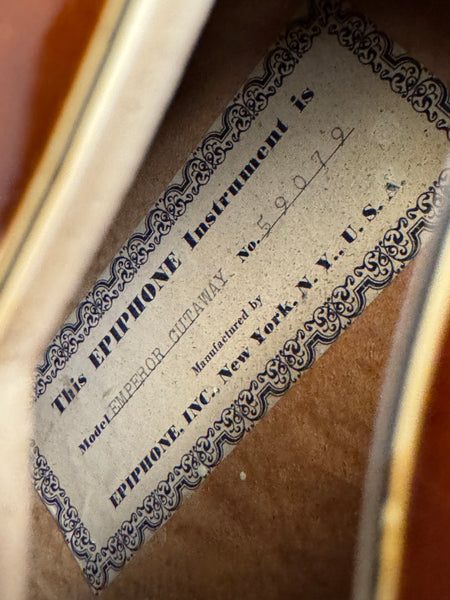 This EPIPHONE Instrument is
Model EMPEROR CUTAWAY No. 59079
Manufactured by
EPIPHONE, INC., New York, N. Y., U. S. A.